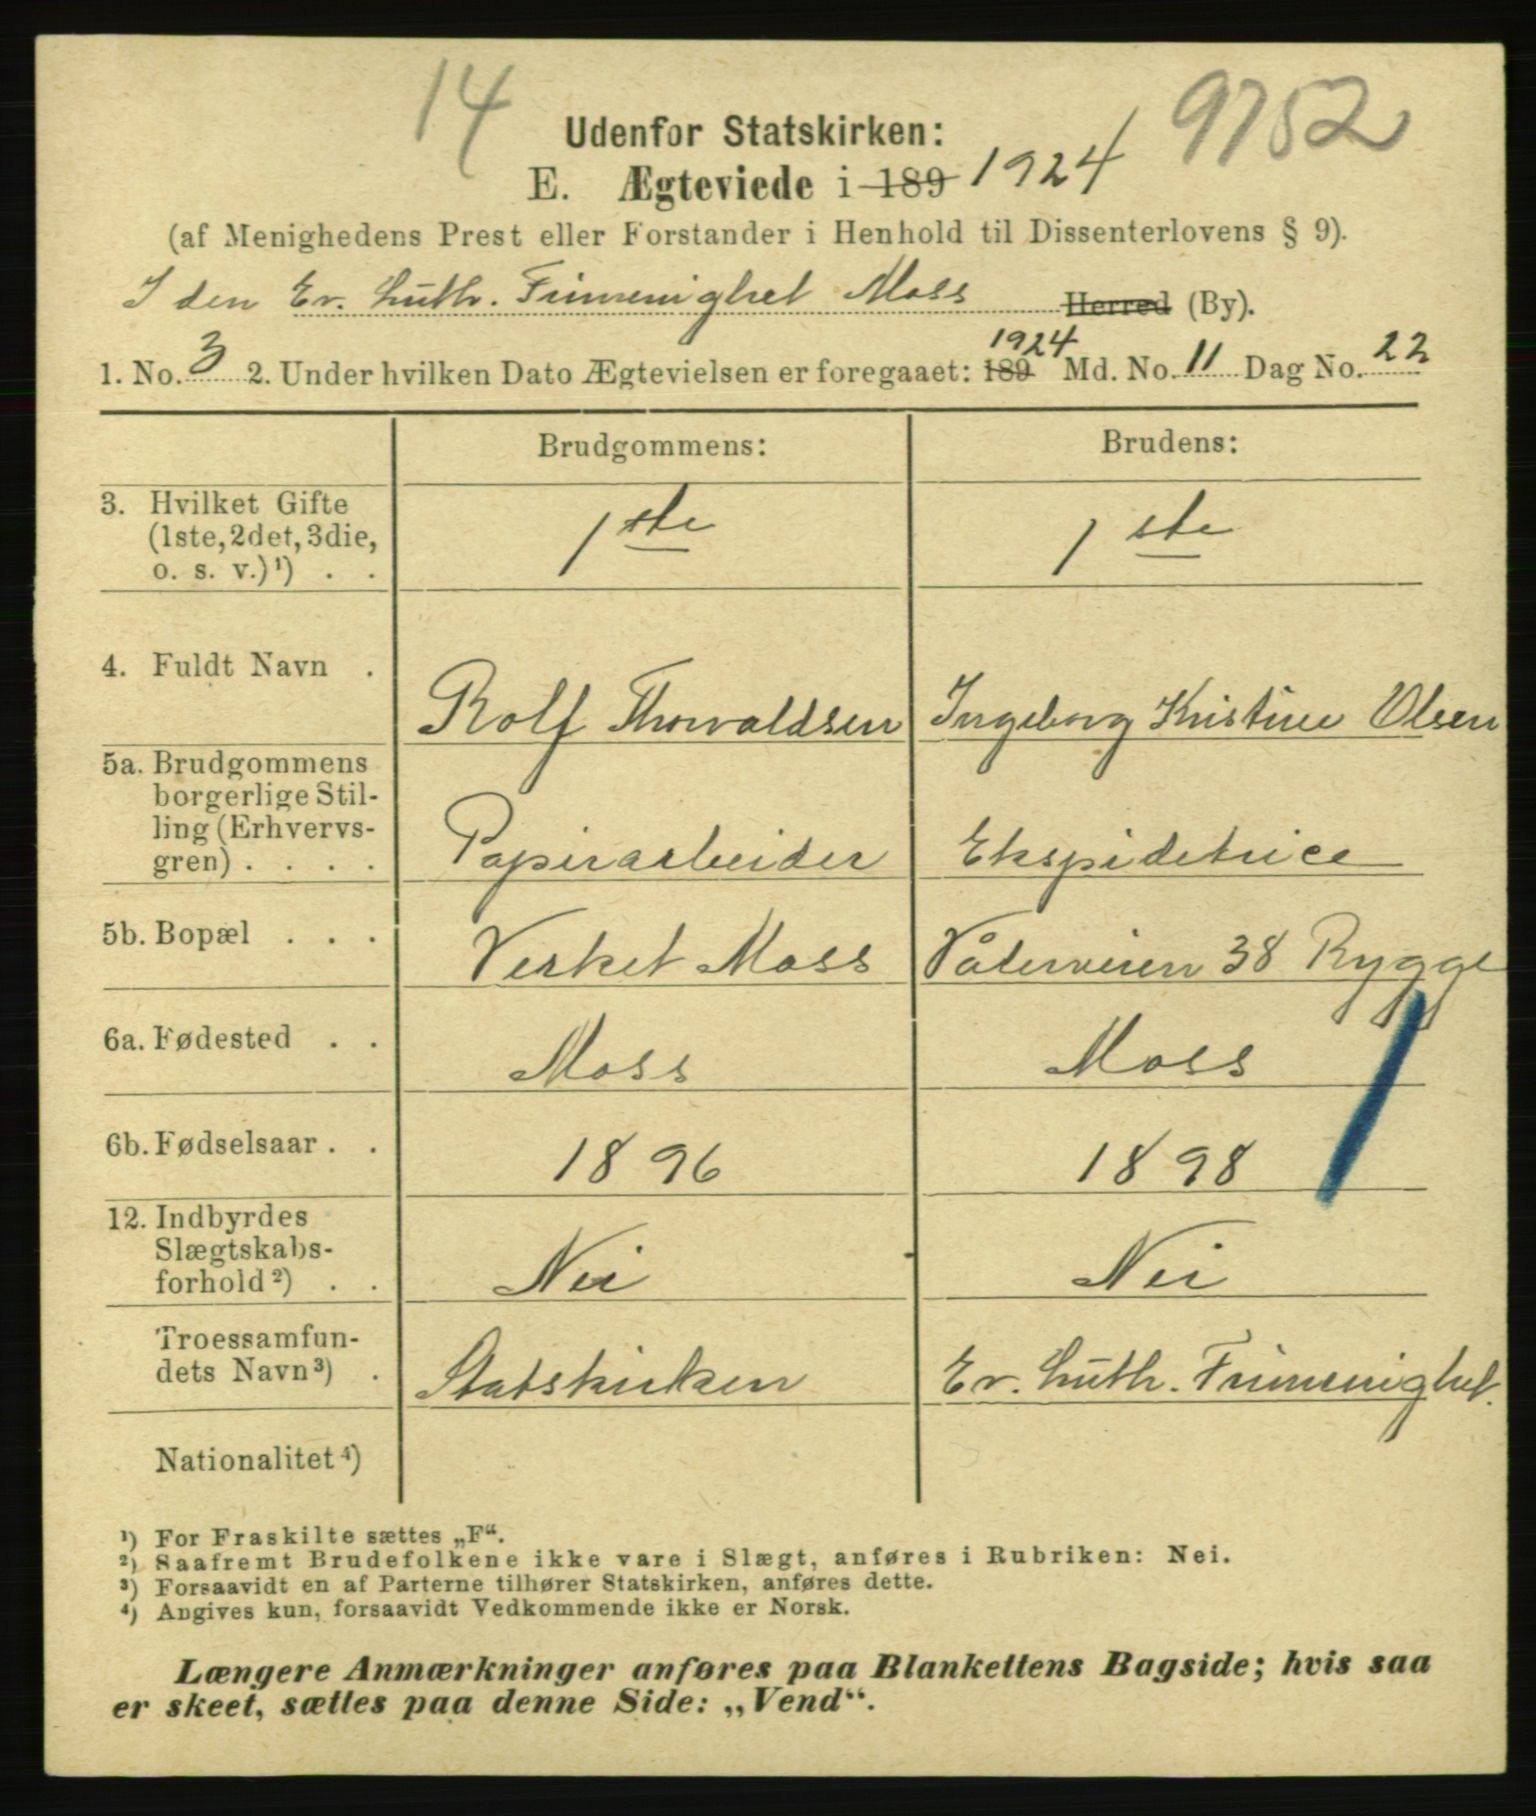 14
9752
Udenfor Statskirken:
E. Ægteviede i 189 1924
(af Menighedens Prest eller Forstander i Henhold til Dissenterlovens § 9).
I den Ev. Luth. Frimenighet Moss Herred (By).
1. No. 3 2. Under hvilken Dato Ægtevielsen er foregaaet: 189 1924 Md. No. 11 Dag No. 22
Brudgommens: Brudens:
3. Hvilket Gifte
(1ste, 2det, 3die,
o. s. v.)¹) . . 1ste 1ste
4. Fuldt Navn . Rolf Thorvaldsen Ingeborg Kristine Olsen
5a. Brudgommens
borgerlige Stil-
ling (Erhvervs-
gren) . . . . Papirarbeider Ekspiditrice
5b. Bopæl . . . Verket Moss Våterveien 38 Rygge
6a. Fødested . . Moss Moss
6b. Fødselsaar . . 1896 1898
12. Indbyrdes
Slægtskabs-
forhold ²) . . Nei Nei
Troessamfun-
dets Navn ³) . Statskirken Ev. Luth. Frimenighet.
Nationalitet ⁴)
¹) For Fraskilte sættes „F“.
²) Saafremt Brudefolkene ikke vare i Slægt, anføres i Rubriken: Nei.
³) Forsaavidt en af Parterne tilhører Statskirken, anføres dette.
⁴) Angives kun, forsaavidt Vedkommende ikke er Norsk.
Længere Anmærkninger anføres paa Blankettens Bagside; hvis saa
er skeet, sættes paa denne Side: „Vend“.